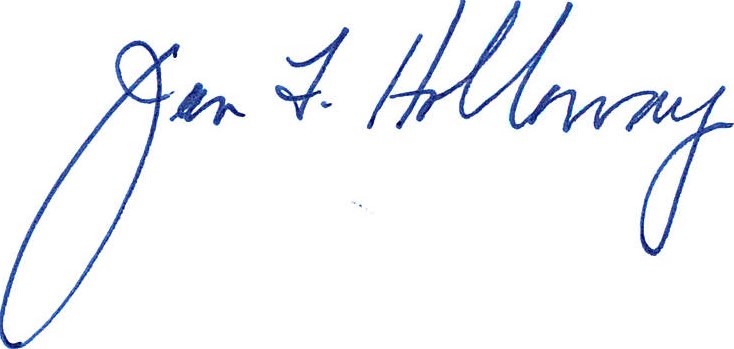 Jean F. Holloway